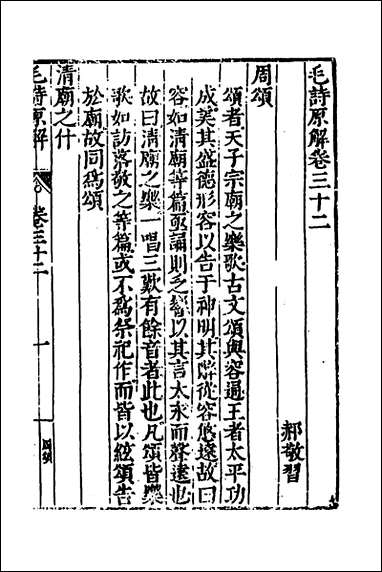 毛詩原解卷三十二
郝敬習
周頌
頌者天子宗廟之樂歌古文頌與容通王者太平功
成美其盛德形容以告于神明其辭從容悠遠故曰
容如清廟等篇亟誦則乏響以其言太永而聲遠也
故曰清廟之樂一唱三歎有餘音者此也凡頌皆樂
歌如訪落敬之等篇或不爲祭祀作而皆以絃頌告
於廟故同爲頌
清廟之什
毛詩原解 卷三十二 一 周頌